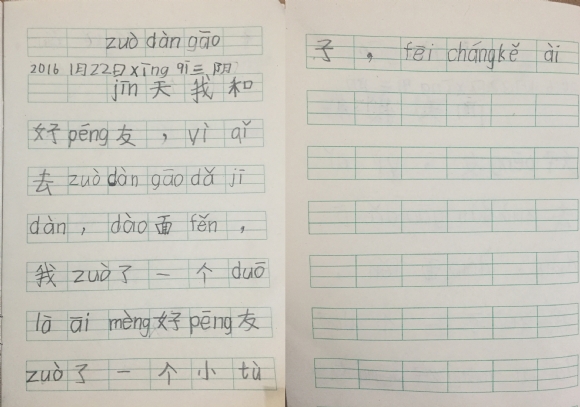 zuò dàn gāo
2016 1月22日 xīng qī 三 阴
jīn 天 我 和
好 pēng 友 , yì qǐ
去 zuò dàn gāo dǎ jī
dàn , dào 面 fěn ,
我 zuò 了 一 个 duō
lā āi mèng 好 pēng 友
zuò 了 一 个 小 tù
子 , fēi cháng kě ài